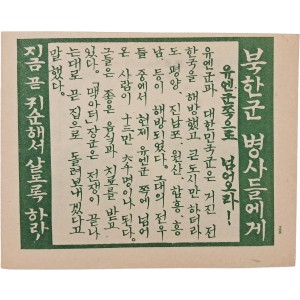 북한군 병사들에게
유엔군쪽으로 넘어오라!
유엔군과 대한민국군은 거진 전
국을 해방했고 큰도시만 하더라
도 평양, 진남포, 원산, 함흥, 흥
남 등이 해방되었다. 그대의 전우
들 중에서 현재 유엔군 쪽에 넘어
온 사람이 十三만 六千명이나 된다.
그들은 좋은 음식과 치료를 받고
있다. 맥아더 장군은 전쟁이 끝나
는대로 곧 집으로 돌려보내겠다고
말했다.
지금 곧 치료해서 살도록 하라